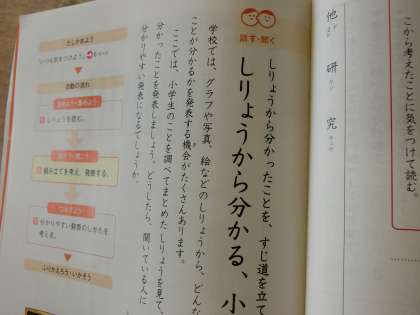 こから考えたことに気をつけて読む。
他
研
究
話す・聞く
しりょうから分かったことを、すじ道を立て
しりょうから分かる、小
学校では、グラフや写真、絵などのしりょうから、どんな
ことが分かるかを発表する機会がたくさんあります。
ここでは、小学生のことを調べてまとめたしりょうを見て、
分かったことを発表しましょう。どうしたら、聞いている人に
分かりやすい発表になるでしょうか。
たしかめよう
活動の流れ
しりょうを読む。
組み立てを考え、発表する。
つなげよう
分かりやすい発表のしかたを
考える。
ふりかえろう・いかそう